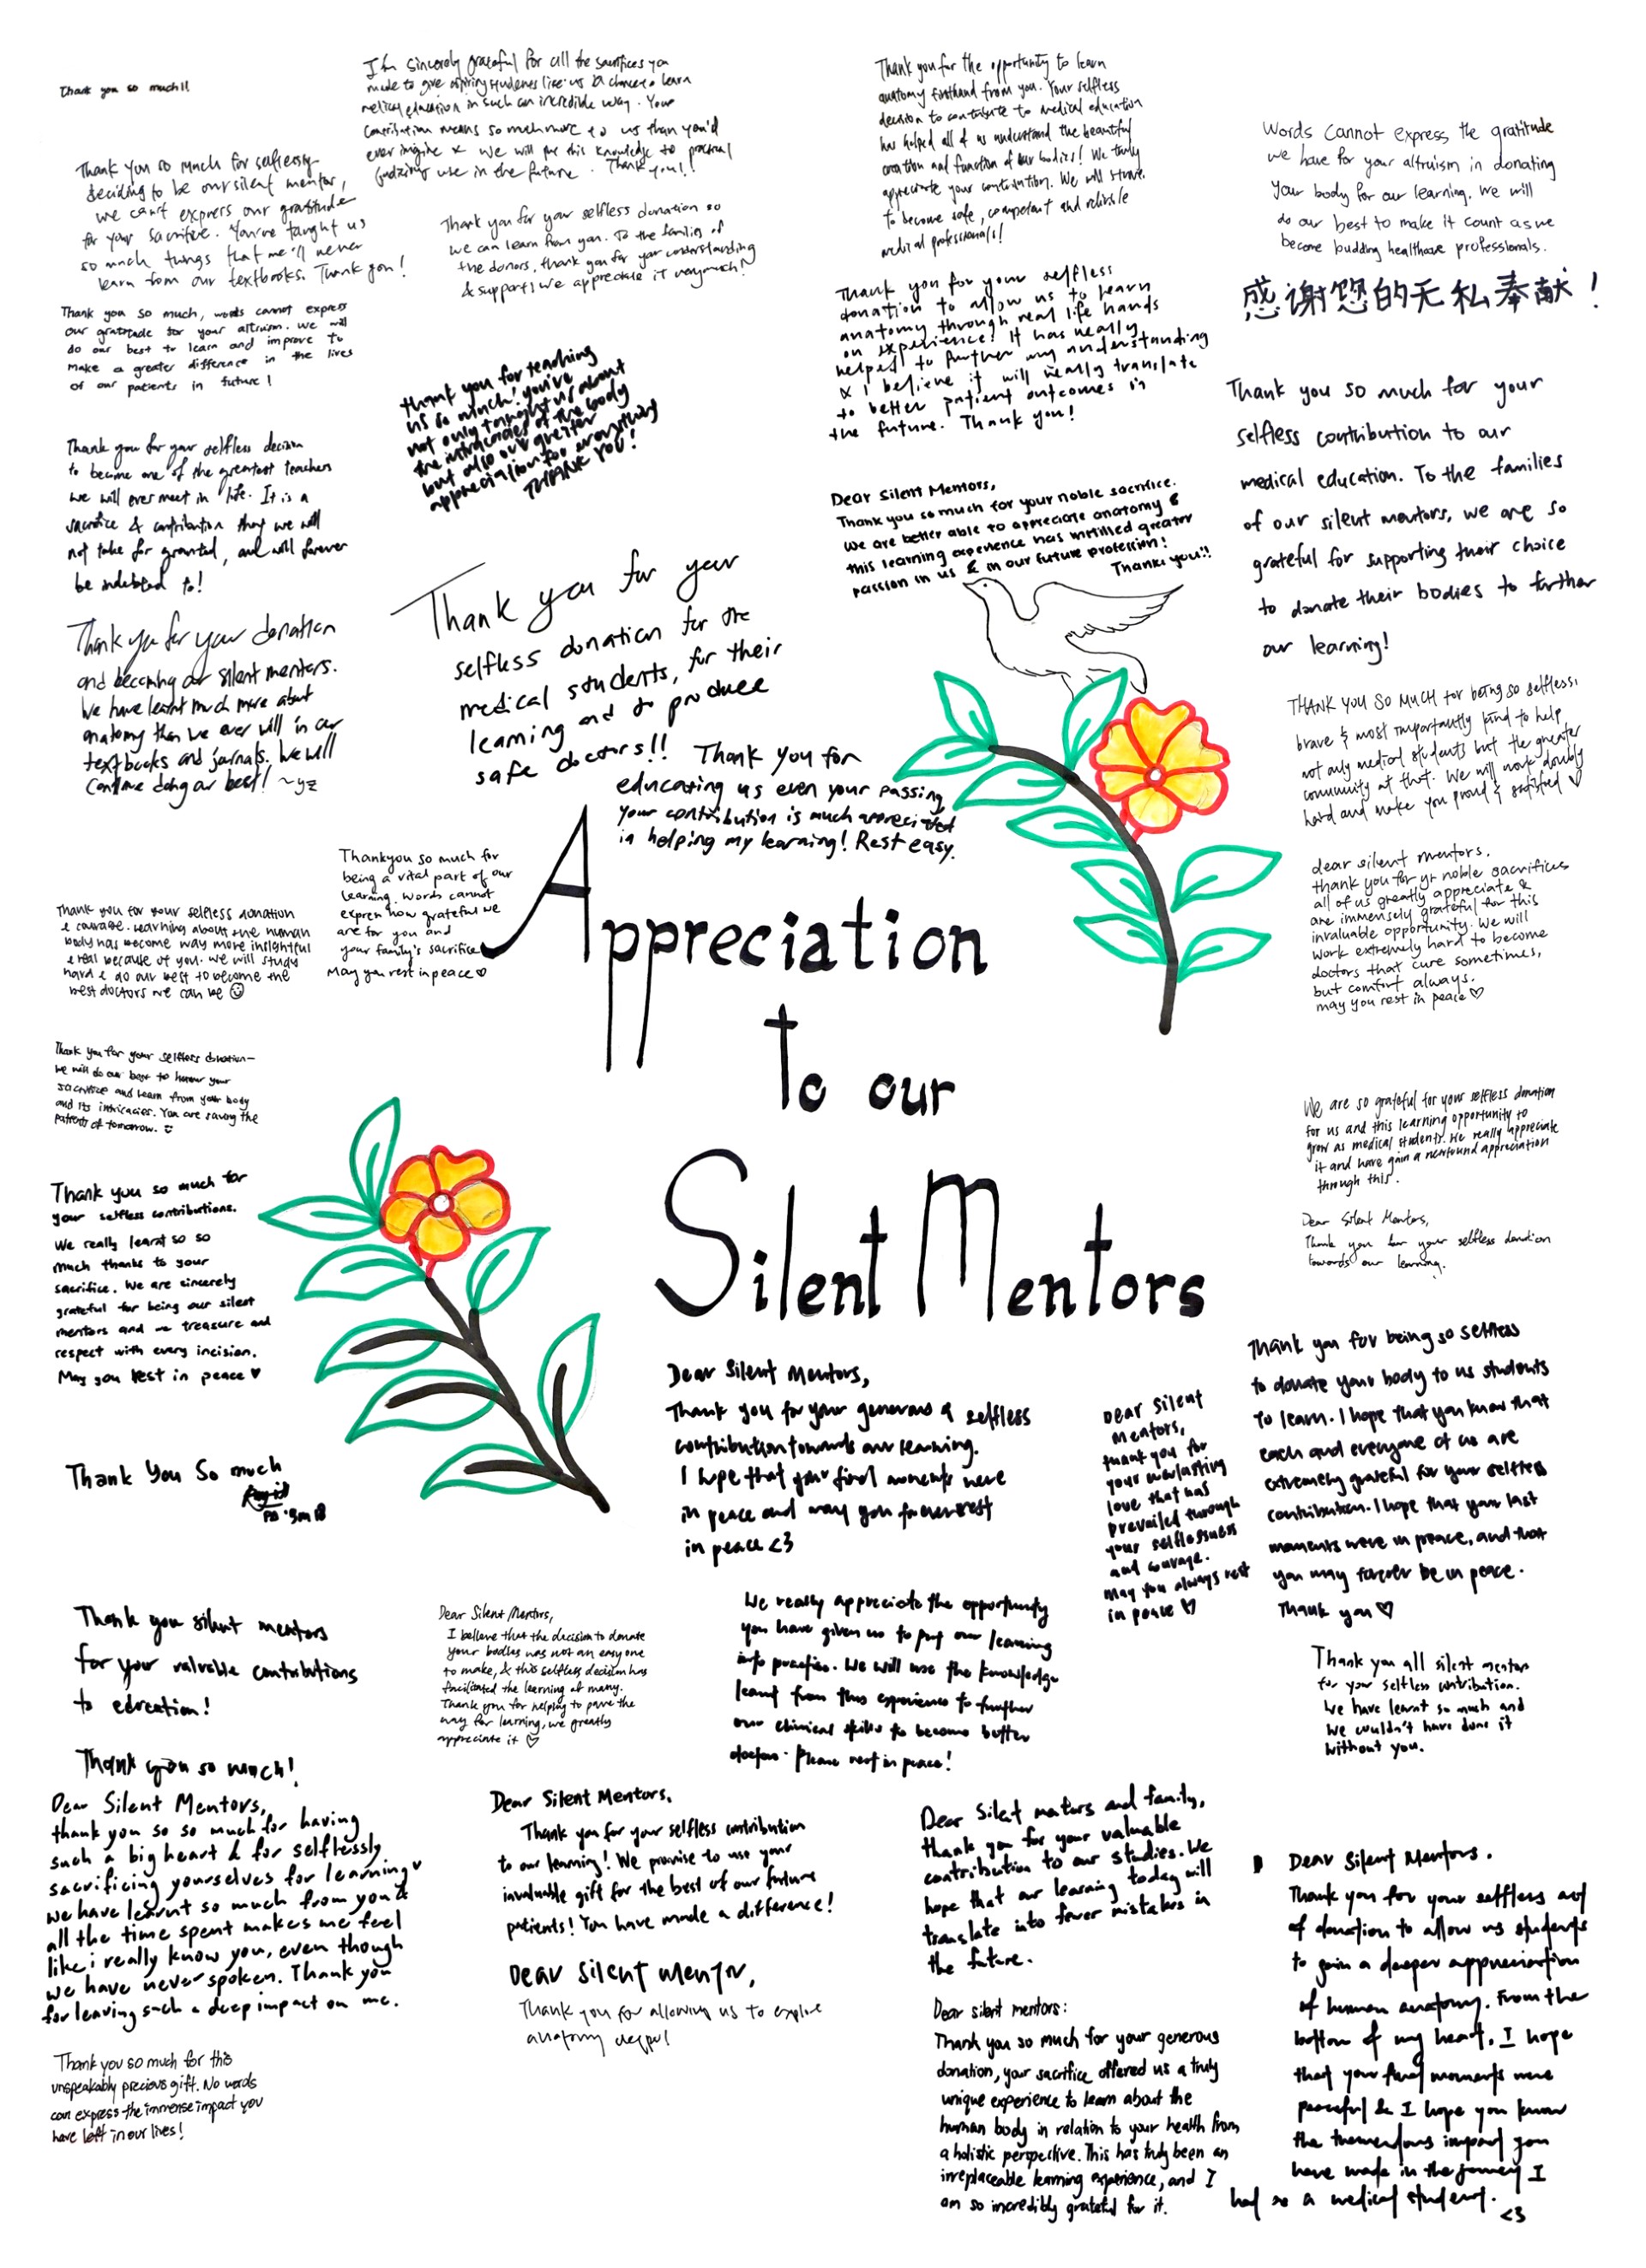 Thank you so much!!
I'm sincerely grateful for all the sacrifices you
made to give aspiring students like us a chance to learn
medical education in such an incredible way. Your
contribution means so much more to us than you'd
ever imagine & we will put this knowledge to practical
use in the future. Thank you!!
Thank you so much for selflessly
deciding to be our silent mentor,
we can't express our gratitude
for your sacrifice. You've taught us
so much things that we'll never
learn from our textbooks. Thank you!
Thank you for your selfless donation so
we can learn from you. To the families of
the donors, thank you for your understanding
& support! We appreciate it very much!
Thank you so much, words cannot express
our gratitude for your altruism. We will
do our best to learn and improve to
make a greater difference in the lives
of our patients in future!
thank you for teaching
us so much! you've
not only taught us about
the intricacies of the body
but also our greater
appreciation for everything
THANK YOU!
Thank you for your selfless decision
to become one of the greatest teachers
we will ever meet in life. It is a
sacrifice & contribution that we will
not take for granted, and will forever
be indebted to!
Thank you for your donation
and becoming our silent mentors.
We have learnt much more about
anatomy than we ever will in our
textbooks and journals. We will
continue doing our best! ~yz
Thank you for your
selfless donation for the
medical students, for their
learning and to produce
safe doctors!!
Thank you for
educating us even your passing
your contribution is much appreciated
in helping my learning! Rest easy.
Thank you for the opportunity to learn
anatomy firsthand from you. Your selfless
decision to contribute to medical education
has helped all of us understand the beautiful
creation and function of our bodies! We truly
appreciate your contribution. We will strive
to become safe, competent and reliable
medical professionals!
Thank you for your selfless
donation to allow us to learn
anatomy through real life hands
on experience! It has really
helped to further my understanding
& I believe it will really translate
to better patient outcomes in
the future. Thank you!
Dear Silent Mentors,
Thank you so much for your noble sacrifice.
We are better able to appreciate anatomy &
this learning experience has instilled greater
passion in us & in our future profession!
Thank you!!
Words cannot express the gratitude
we have for your altruism in donating
your body for our learning. We will
do our best to make it count as we
become budding healthcare professionals.
感谢您的无私奉献！
Thank you so much for your
selfless contribution to our
medical education. To the families
of our silent mentors, we are so
grateful for supporting their choice
to donate their bodies to further
our learning!
THANK YOU SO MUCH for being so selfless,
brave & most importantly kind to help
not only medical students but the greater
community at that. We will work doubly
hard and make you proud & satisfied ♡
dear silent mentors,
thank you for yr noble sacrifices
all of us greatly appreciate &
are immensely grateful for this
invaluable opportunity. We will
work extremely hard to become
doctors that cure sometimes,
but comfort always.
may you rest in peace ♡
Thankyou so much for
being a vital part of our
learning. Words cannot
express how grateful we
are for you and
your family's sacrifice
May you rest in peace ♡
Thank you for your selfless donation
& courage. Learning about the human
body has become way more insightful
& real because of you. We will study
hard & do our best to become the
best doctors we can be ☺
Appreciation
to our
Silent Mentors
Thank you for your selfless donation—
We will do our best to honour your
sacrifice and learn from your body
and its intricacies. You are saving the
patients of tomorrow. :)
We are so grateful for your selfless donation
for us and this learning opportunity to
grow as medical students. We really appreciate
it and have gain a newfound appreciation
through this.
Dear Silent Mentors,
Thank you for your selfless donation
towards our learning.
Thank you so much for
your selfless contributions.
We really learnt so so
much thanks to your
sacrifice. We are sincerely
grateful for being our silent
mentors and we treasure and
respect with every incision.
May you rest in peace ♥
Thank You So much
Dear Silent Mentors,
Thank you for your generous & selfless
contribution towards our learning.
I hope that your final moments were
in peace and may you forever rest
in peace <3
Dear Silent
Mentors,
thank you for
your everlasting
love that has
prevailed through
your selflessness
and courage.
May you always rest
in peace ♡
Thank you for being so selfless
to donate your body to us students
to learn. I hope that you know that
each and everyone of us are
extremely grateful for your selfless
contribution. I hope that your last
moments were in peace, and that
you may forever be in peace.
Thank you ♡
Thank you silent mentors
for your valuable contributions
to education!
Dear Silent Mentors,
I believe that the decision to donate
your bodies was not an easy one
to make, & this selfless decision has
facilitated the learning of many.
Thank you for helping to pave the
way for learning, we greatly
appreciate it ♡
We really appreciate the opportunity
you have given us to put our learning
into practice. We will use the knowledge
learnt from this experience to further
our clinical skills to become better
doctors. Please rest in peace!
Thank you all silent mentors
for your selfless contribution.
We have learnt so much and
we couldn't have done it
without you.
Thank you so much!
Dear Silent Mentors,
thank you so so much for having
such a big heart & for selflessly
sacrificing yourselves for learning
we have learnt so much from you &
all the time spent makes me feel
like i really know you, even though
we have never spoken. Thank you
for leaving such a deep impact on me.
Dear Silent Mentors,
Thank you for your selfless contribution
to our learning! We promise to use your
invaluable gift for the best of our future
patients! You have made a difference!
Dear Silent Mentor,
Thank you for allowing us to explore
anatomy
Dear Silent mentors and family,
thank you for your valuable
contribution to our studies. We
hope that our learning today will
translate into fewer mistakes in
the future.
Dear silent mentors:
Thank you so much for your generous
donation, your sacrifice offered us a truly
unique experience to learn about the
human body in relation to your health from
a holistic perspective. This has truly been an
irreplaceable learning experience, and I
am so incredibly grateful for it.
Dear Silent Mentors.
Thank you for your selfless act
of donation to allow us students
to gain a deeper appreciation
of human anatomy. From the
bottom of my heart, I hope
that your final moments were
peaceful & I hope you know
the tremendous impact you
have made in the journey I
had as a medical student.
<3
Thank you so much for this
unspeakably precious gift. No words
can express the immense impact you
have left in our lives!